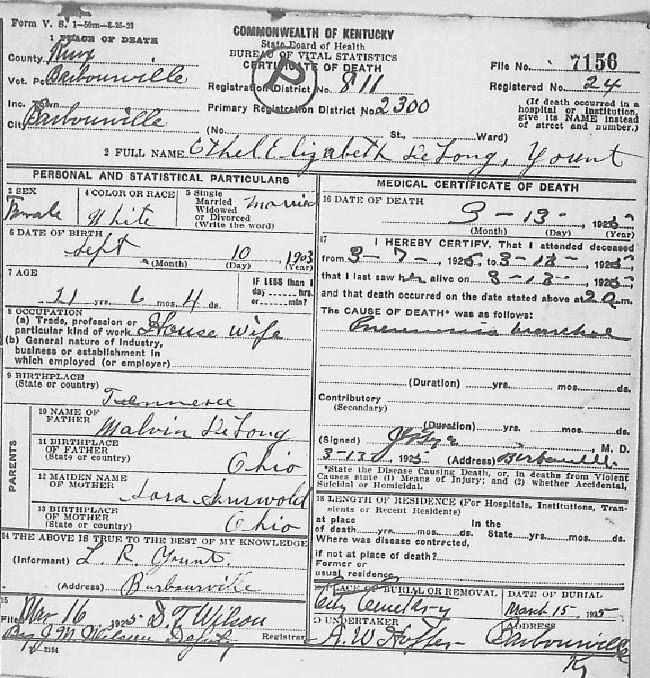 Form V. S. 1-50m-8-25-23
COMMONWEALTH OF KENTUCKY
State Board of Health
BUREAU OF VITAL STATISTICS
CERTIFICATE OF DEATH
1 PLACE OF DEATH
County Knox
Vot. Pct. Barbourville
Inc. Town
City Barbourville
P
Registration District No. 811
Primary Registration District No. 2300
File No. 7156
Registered No. 24
(If death occurred in a
hospital or institution,
give its NAME instead
of street and number.)
(No. St., Ward)
2 FULL NAME Ethel Elizabeth DeLong, Yount
PERSONAL AND STATISTICAL PARTICULARS
3 SEX
Female
4 COLOR OR RACE
White
5 Single
Married
Widowed
or Divorced
(Write the word)
Married
6 DATE OF BIRTH
Sept 10 1903
(Month) (Day) (Year)
7 AGE
21 yrs. 6 mos. 4 ds.
IF LESS than 1
day hrs.
or min.?
8 OCCUPATION
(a) Trade, profession or
particular kind of work House wife
(b) General nature of industry,
business or establishment in
which employed (or employer)
9 BIRTHPLACE
(State or country)
Tennessee
PARENTS
10 NAME OF
FATHER
Malvin DeLong
11 BIRTHPLACE
OF FATHER
(State or country)
Ohio
12 MAIDEN NAME
OF MOTHER
13 BIRTHPLACE
OF MOTHER
(State or country)
Ohio
14 THE ABOVE IS TRUE TO THE BEST OF MY KNOWLEDGE
(Informant) L. R. Yount
(Address) Barbourville
15
Filed Mar 16 1925 D. T. Wilson
Registrar
By J. M. Wilson Deputy
MEDICAL CERTIFICATE OF DEATH
16 DATE OF DEATH
3-13-, 1925
(Month) (Day) (Year)
17 I HEREBY CERTIFY, That I attended deceased
from 3-7-, 1925, to 3-13-, 1925,
that I last saw her alive on 3-13-, 1925,
and that death occurred on the date stated above at 2 a.m.
The CAUSE OF DEATH* was as follows:
Pneumonia
(Duration) yrs. mos. ds.
Contributory
(Secondary)
(Duration) yrs. mos. ds.
(Signed) M. D.
3-13, 1925 (Address) Barbourville.
*State the Disease Causing Death, or, in deaths from Violent
Causes state (1) Means of Injury; and (2) whether Accidental,
Suicidal or Homicidal.
18 LENGTH OF RESIDENCE (For Hospitals, Institutions, Tran-
sients or Recent Residents)
at place In the
of death yrs. mos. ds. State yrs. mos. ds.
Where was disease contracted,
if not at place of death?
Former or
usual residence
19 PLACE OF BURIAL OR REMOVAL
City Cemetery
DATE OF BURIAL
March 15 1925
20 UNDERTAKER
A. W. Hopper
ADDRESS
Barbourville
Ky